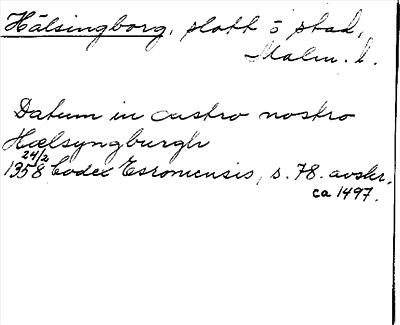 Hälsingborg, slott o stad,
Malm. l.
Datum in castro nostro
Hælsyngburgh
24/2
1358 Codex Esromensis, s. 78. avskr.
ca 1497.